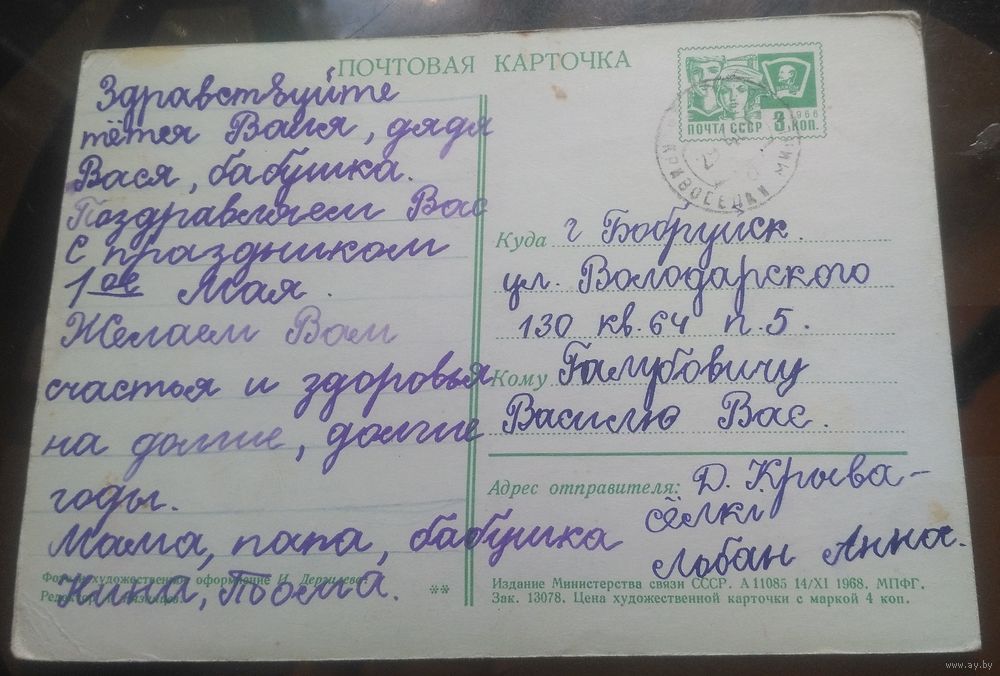 ПОЧТОВАЯ КАРТОЧКА
Здравствуйте
тётя Валя, дядя
Вася, бабушка.
Поздравляем Вас
с праздником
1ое Мая.
Желаем Вам
счастья и здоровья
на долгие, долгие
годы.
Мама, папа, бабушка
ПОЧТА СССР 3 КОП.
1966
КРИВОСЕЛКИ МИН
Куда г Бобруйск.
ул. Володарского
130 кв. 64 п. 5.
Кому Галубовичу
Василю Вас.
Адрес отправителя: Д. Крыва-
сёлкі
Лобан Анна.
художественное оформление И. Дергилева
Редактор
**
Издание Министерства связи СССР. А 11085 14/XI 1968. МПФГ.
Зак. 13078. Цена художественной карточки с маркой 4 коп.
www.ay.by